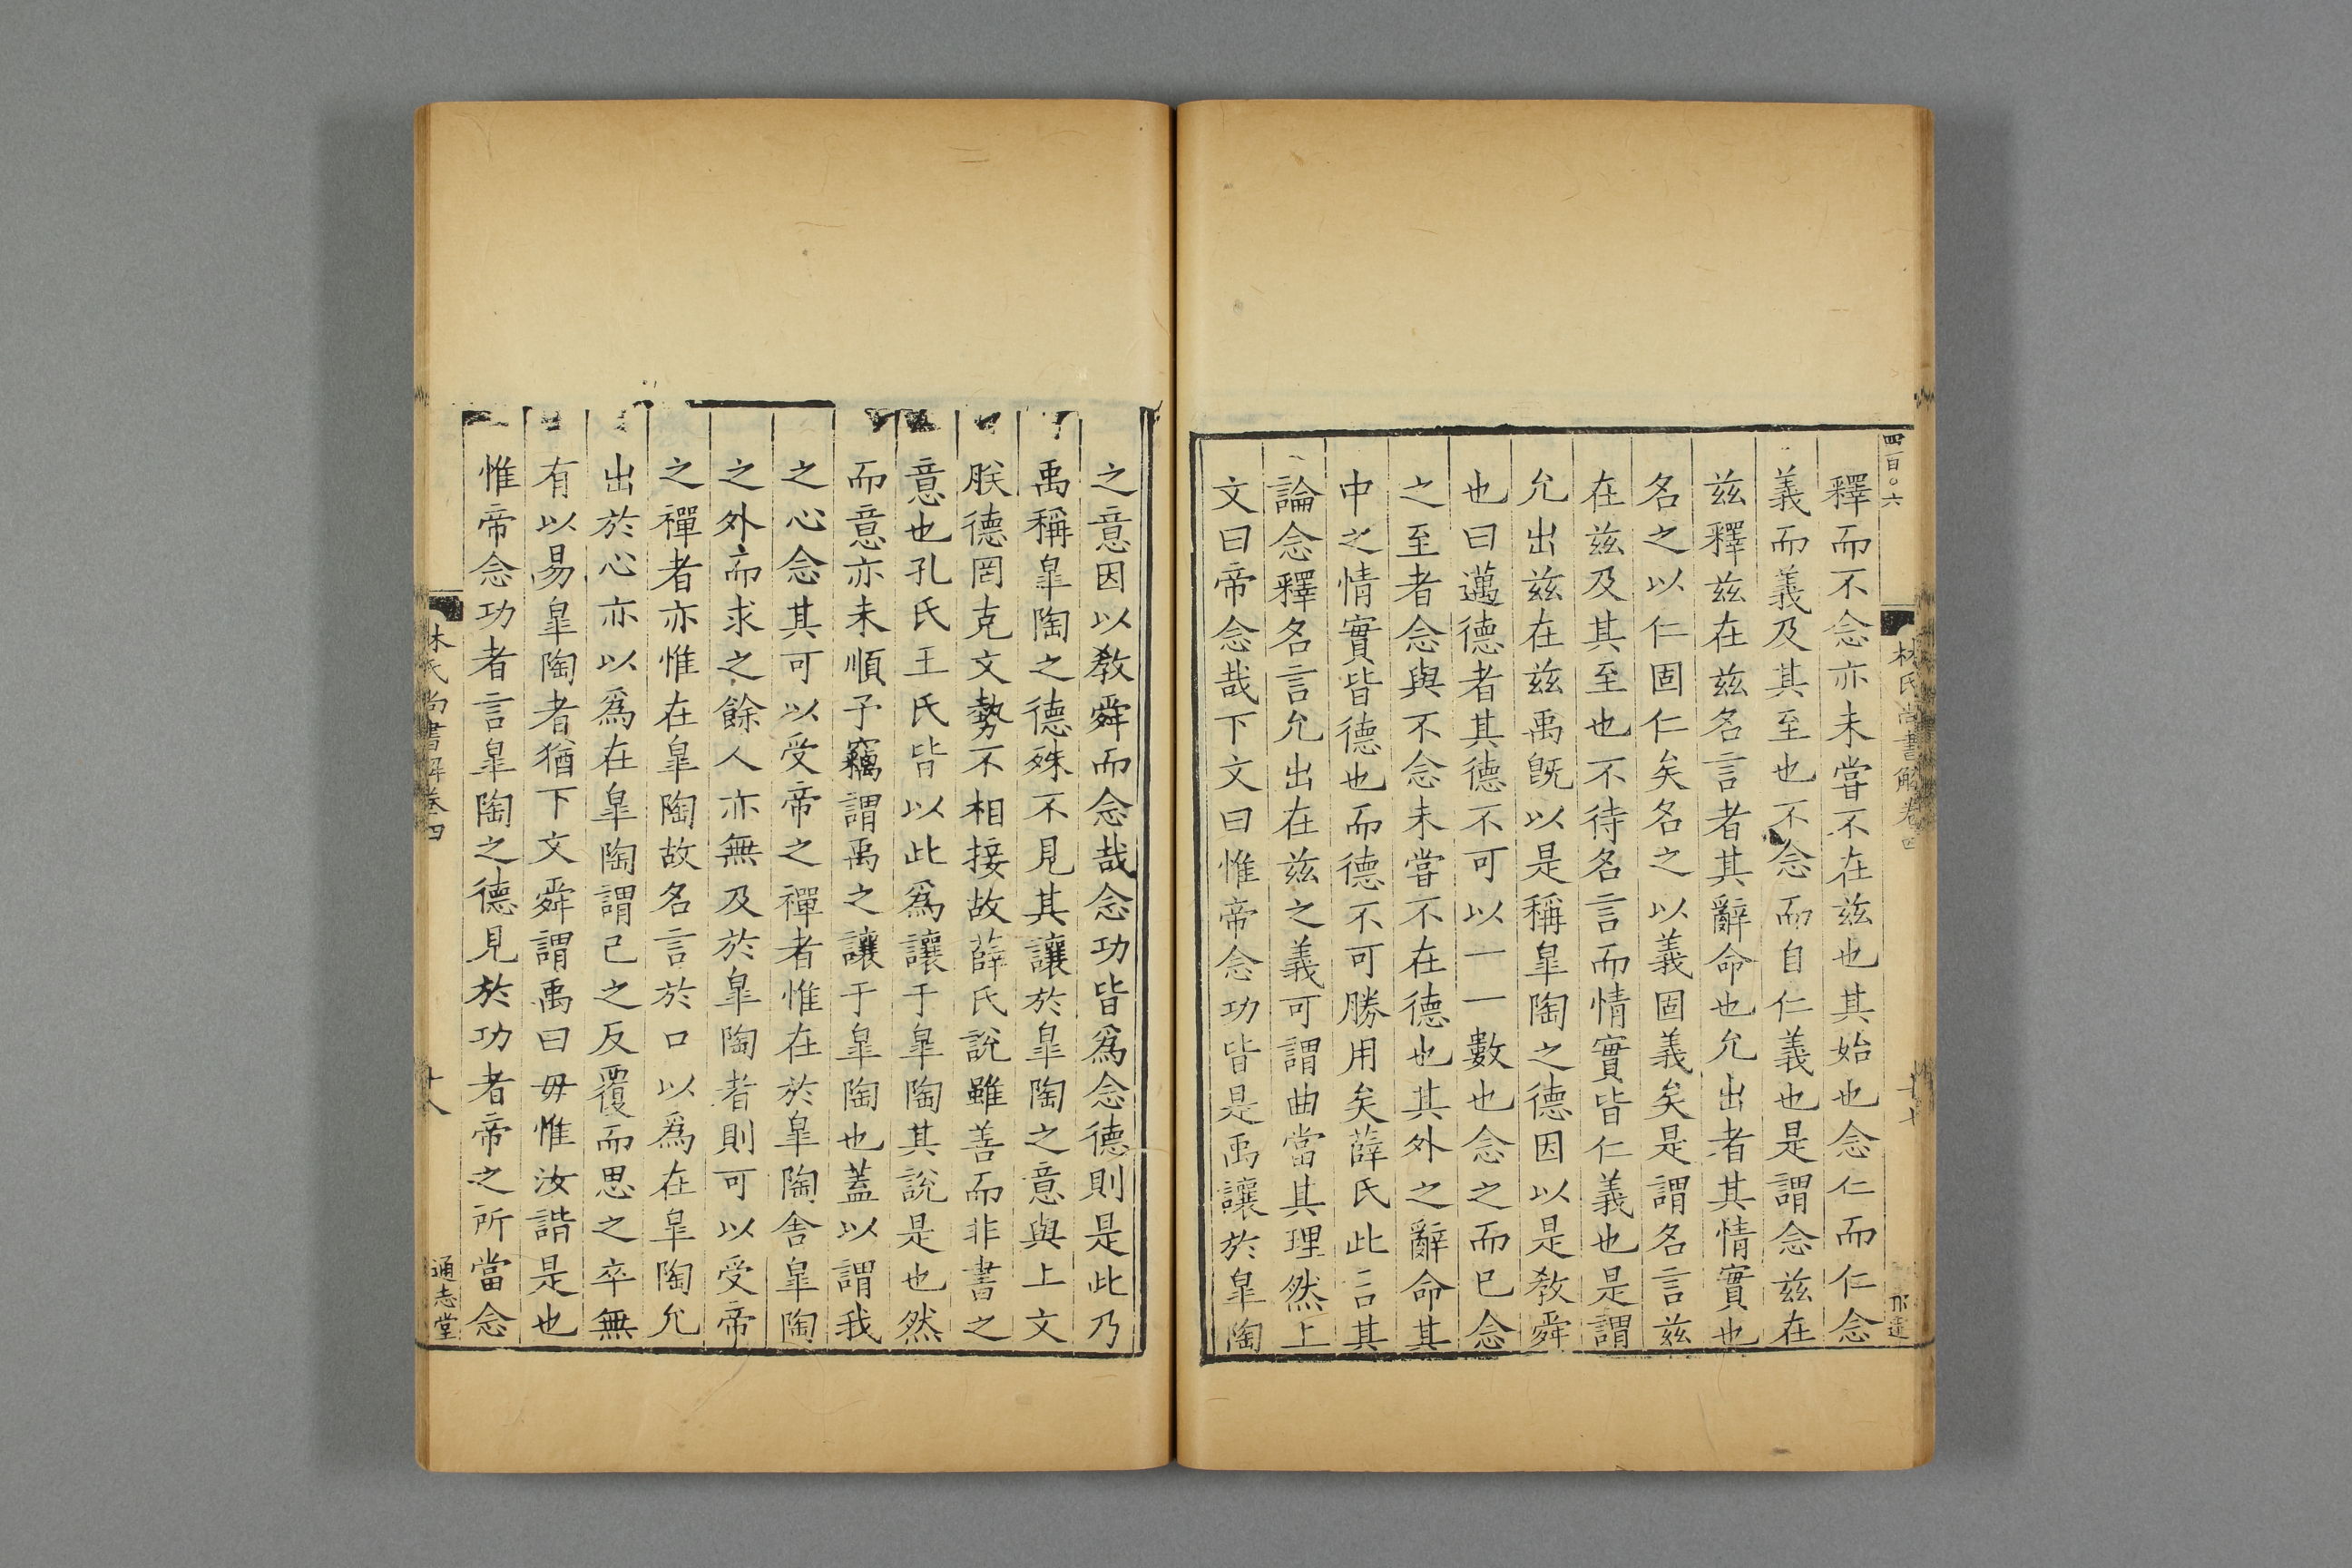 四百〇六
林氏尚書解卷四
釋而不念亦未嘗不在兹也其始也念仁而仁念
義而義及其至也不念而自仁義也是謂念兹在
兹釋兹在兹名言者其辭命也允出者其情實也
名之以仁固仁矣名之以義固義矣是謂名言兹
在兹及其至也不待名言而情實皆仁義也是謂
允出兹在兹禹旣以是稱皐陶之德因以是教舜
也曰邁德者其德不可以一一數也念之而已念
之至者念與不念未嘗不在德也其外之辭命其
中之情實皆德也而德不可勝用矣薛氏此言其
論念釋名言允出在兹之義可謂曲當其理然上
文曰帝念哉下文曰惟帝念功皆是禹讓於皐陶
之意因以教舜而念哉念功皆爲念德則是此乃
禹稱皐陶之德殊不見其讓於皐陶之意與上文
朕德罔克文勢不相接故薛氏說雖善而非書之
意也孔氏王氏皆以此爲讓于皐陶其說是也然
而意亦未順予竊謂禹之讓于皐陶也蓋以謂我
之心念其可以受帝之禪者惟在於皐陶舍皐陶
之外而求之餘人亦無及於皐陶者則可以受帝
之禪者亦惟在皐陶故名言於口以爲在皐陶允
出於心亦以爲在皐陶謂己之反覆而思之卒無
有以易皐陶者猶下文舜謂禹曰毋惟汝諧是也
惟帝念功者言皐陶之德見於功者帝之所當念
林氏尚書解卷四
十八
通志堂